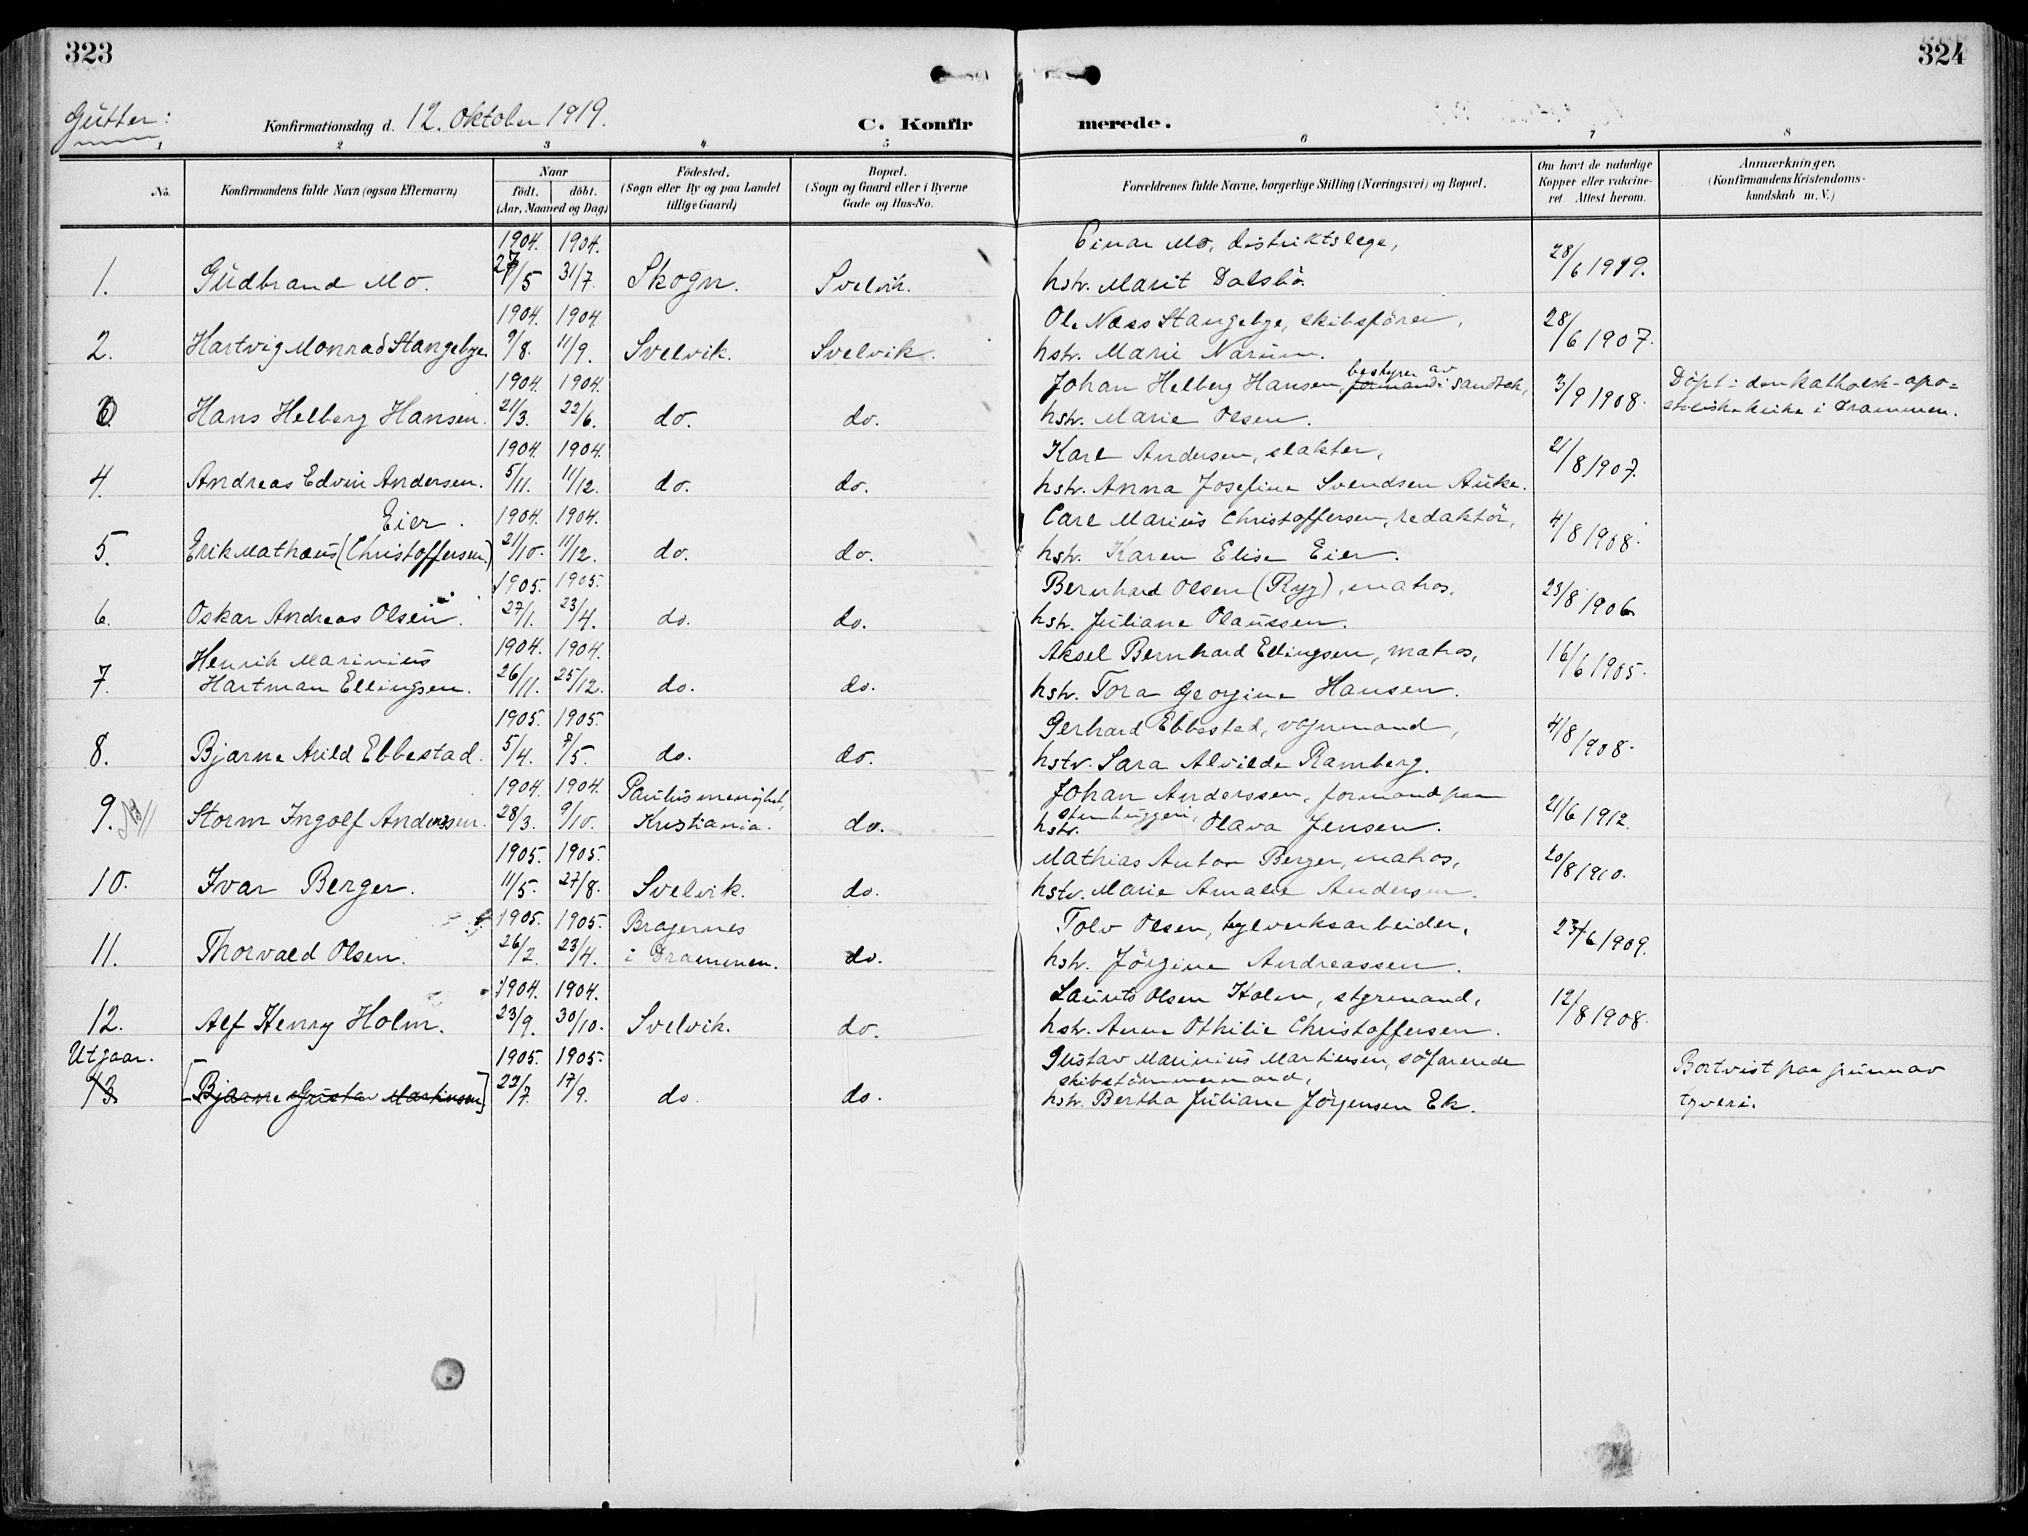 323
324
Gutter:
Konfirmationsdag d. 12. Oktober 1919.
C. Konfir
merede.
1 2 3 4 5 6 7 8
No.
Konfirmandens fulde Navn (ogsaa Efternavn)
Naar
født. døbt.
(Aar, Maaned og Dag)
Fødested.
(Sogn eller By og paa Landet
tillige Gaard)
Bopæl.
(Sogn og Gaard eller i Byerne
Gade og Hus-No.
Forældrenes fulde Navne, borgerlige Stilling (Næringsvei) og Bopæl.
Om havt de naturlige
Kopper eller vakcine-
ret. Attest herom.
Anmærkninger.
(Konfirmandens Kristendoms-
kundskab m. V.)
1904. 1904. Einar Mo, distriktslege,
1. Gudbrand Mo. 27/5 31/7. Skogn. Svelvik. hstr. Marit Dalsbø. 28/6 1919.
1904. 1904. Ole Næss Stangebye, skibsfører,
2. Hartvig Monrad Stangebye. 9/8. 11/9. Svelvik. Svelvik. hstr. Marie Narum. 28/6 1907.
1904. 1904. Johan Helberg Hansen, bestyrer av formand i sandtak,
3. Hans Helberg Hansen. 21/3. 22/6. do. do. hstr. Marie Olsen. 3/9 1908. Døpt i den katholsk-apo=
stoliske kirke i Drammen.
1904. 1904. Karl Andersen, slakter,
4. Andreas Edvin Andersen. 5/11. 11/12. do. do. hstr. Anna Josefine Svendsen Auke. 21/8 1907.
Eier. 1904. 1904. Carl Marius Christoffersen, redaktør,
5. Erik Mathæus (Christoffersen.) 21/10. 11/12. do. do. hstr. Karen Elise Eier. 4/8 1908.
1905. 1905. Bernhard Olsen (Ryg), matros,
6. Oskar Andreas Olsen. 27/1. 23/4. do. do. hstr. Juliane Olaussen. 23/8 1906.
Henrik Marinius 1904. 1904. Aksel Bernhard Ellingsen, matros,
7. Hartman Ellingsen. 26/11. 25/12. do. do. hstr. Tora Georgine Hansen. 16/6 1905.
1905. 1905. Gerhard Ebbestad, vognmand,
8. Bjarne Arild Ebbestad. 5/4. 7/5. do. do. hstr. Sara Alvilde Ramberg. 4/8 1908.
1904. 1904. Paulus menighet, Johan Anderssen, formand paa
stenhuggeri,
9. Storm Ingolf Anderssen. 28/3. 9/10. Kristiania. do. hstr. Olava Jensen. 21/6 1912.
1905. 1905. Mathias Anton Berger, matros,
10. Ivar Berger. 11/5. 27/8. Svelvik. do. hstr. Marie Amalie Andersen. 20/8 1910.
1905. 1905. Bragernes Tolv Olsen, hylverksarbeider,
11. Thorvald Olsen. 26/2. 23/4. i Drammen. do. hstr. Jørgine Andreassen. 23/6 1909.
1904. 1904. Laurits Olsen Holm, styrmand,
12. Alf Henry Holm. 23/9. 30/10. Svelvik. do. hstr. Anne Othilie Christoffersen. 12/8 1908.
Utgaar. 1905. 1905. Gustav Marinius Martinsen, søfarende
skibstømmermand,
13. [Bjarne Gustav Martinsen] 22/7. 17/9. do. do. hstr. Bertha Juliane Jørgensen Ek. Bortvist paa grunn av
tyveri.